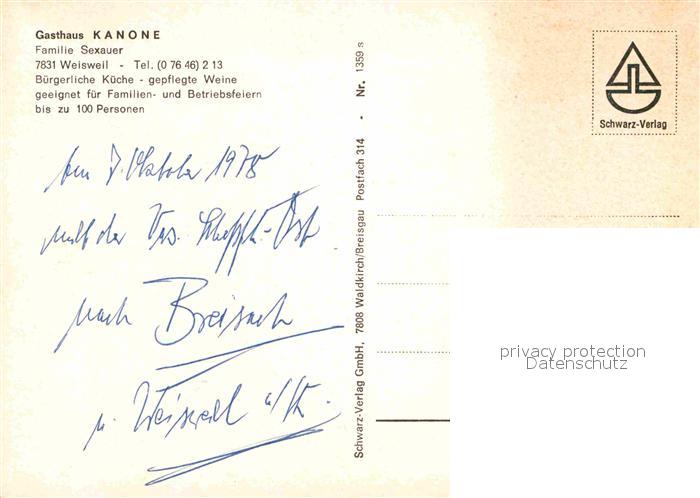 Gasthaus KANONE
Familie Sexauer
7831 Weisweil - Tel. (0 76 46) 2 13
Bürgerliche Küche - gepflegte Weine
geeignet für Familien- und Betriebsfeiern
bis zu 100 Personen
7. Oktober 1978
mit der
nach Breisach
u. Weisweil a/Rh.
Schwarz-Verlag GmbH, 7808 Waldkirch/Breisgau Postfach 314 - Nr. 1359 s
Schwarz-Verlag
privacy protection
Datenschutz